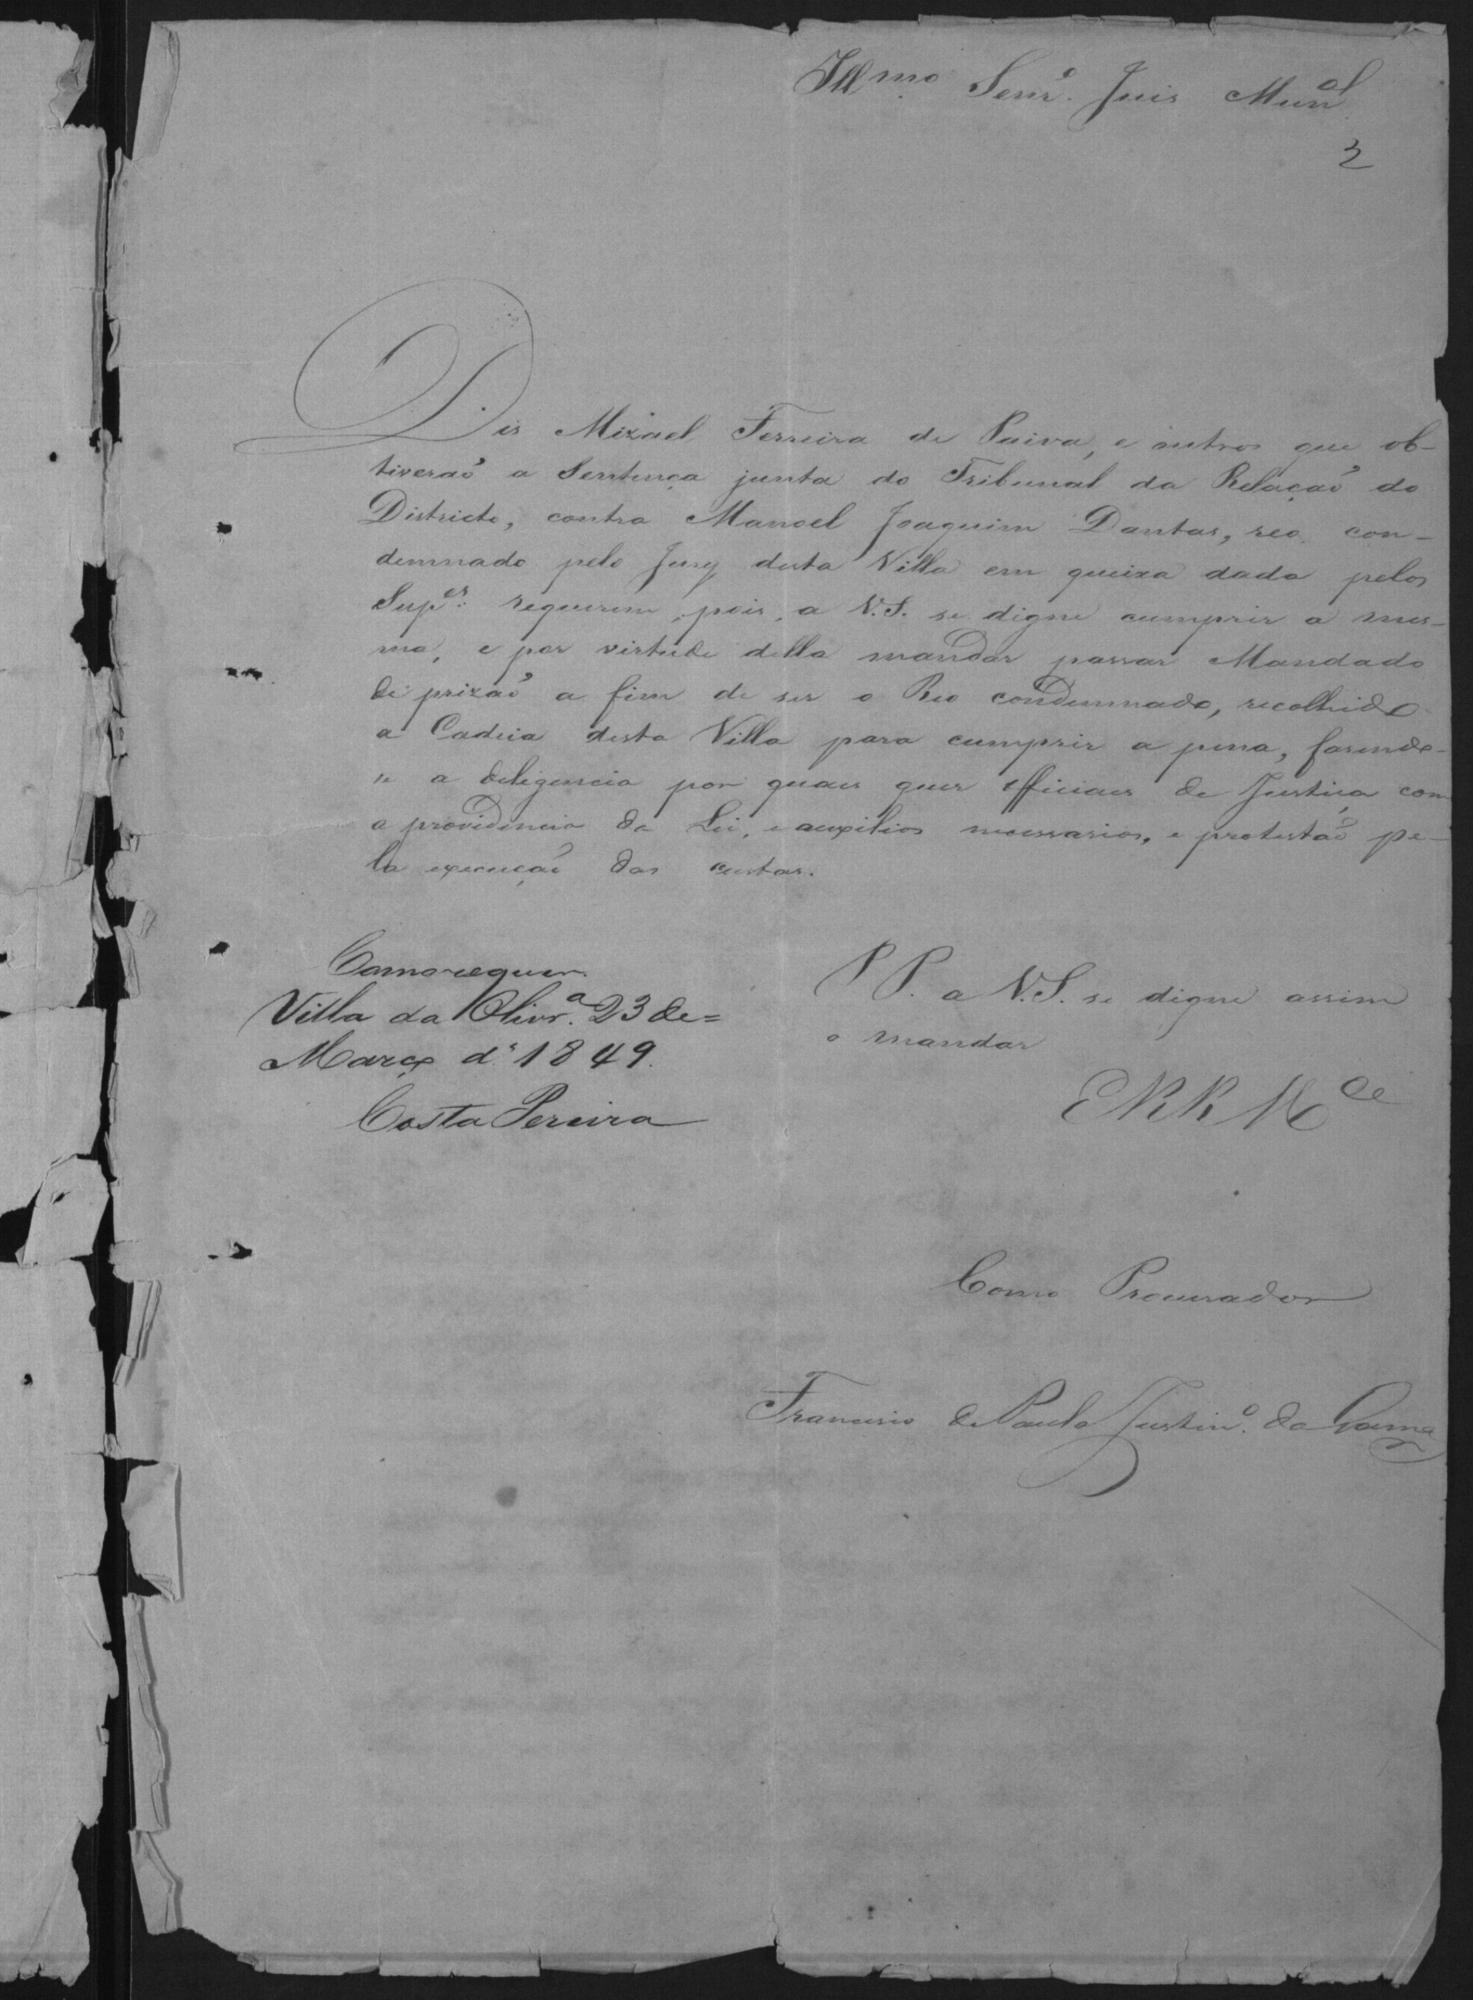 Illmo Senr.o Juis Munal
2
Dis Mizael Ferreira de Paiva, e outros que ob-
tiveraõ a Sentença junta do Tribunal da Relaçaõ do
Districto, contra Manoel Joaquim Dantas, reo con-
demnado pelo Jury desta Villa em queixa dada pelos
Supes. requerem, pois, a V.S. se digne cumprir a mes-
ma, e por virtude della mandar passar Mandado
de prizaõ a fim de ser o Reo condemnado, recolhido
a Cadeia desta Villa para cumprir a pena, fasendo-
se a deligencia por quaes quer officiaes de Justiça com
a providencia da Lei, e auxilios necessarios, e protestaõ pe-
la execuçaõ das custas.
P P. a V.S. se digne assim
o mandar
E R R Mce
Como requer.
Villa da Olivr.a 23 de=
Março d' 1849.
Costa Pereira
Como Procurador
Francisco de Paula Justin.o da Gama